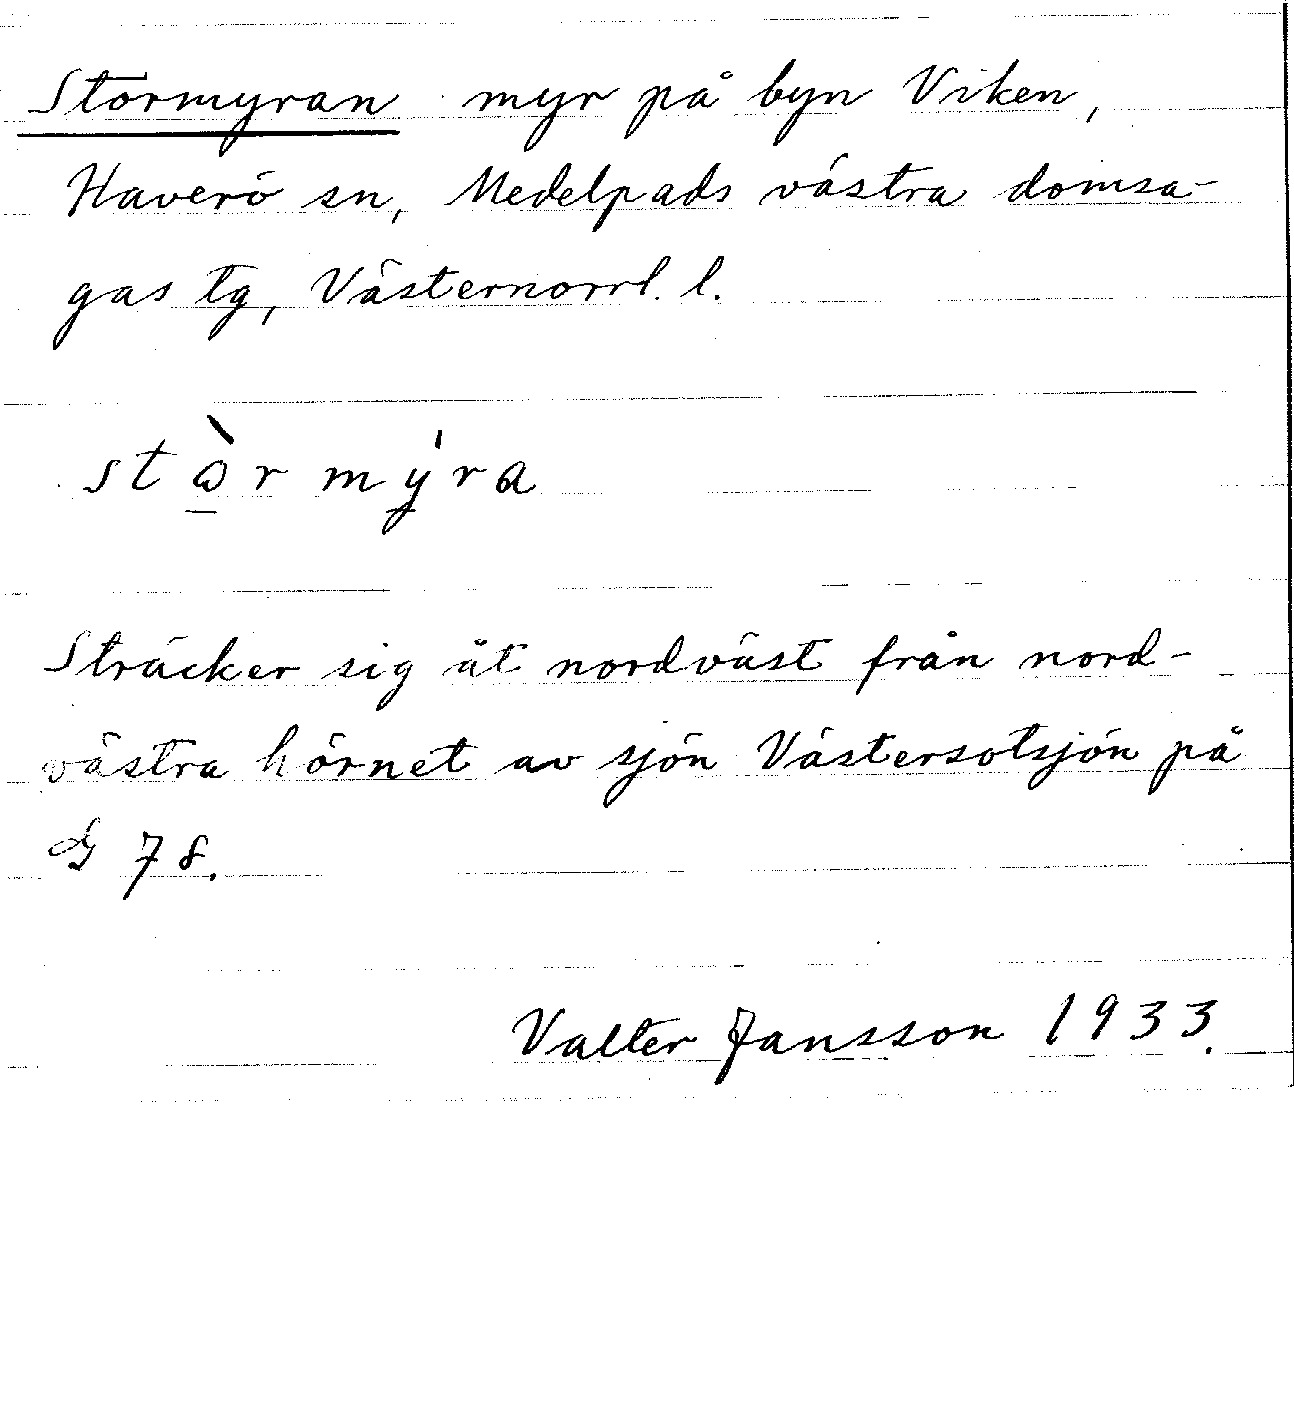 Stormyran myr på byn Viken,
Haverö sn, Medelpads västra domsa-
gas tg, Västernorrl. l.
stòrmýra
Sträcker sig åt nordväst från nord-
västra hörnet av sjön Västersotsjön på
G 78.
Valter Jansson 1933.